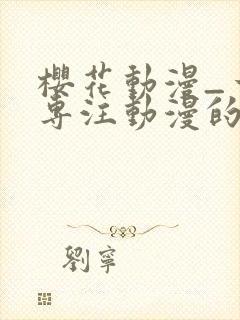 櫻花動漫_
專注動漫的
劉寧